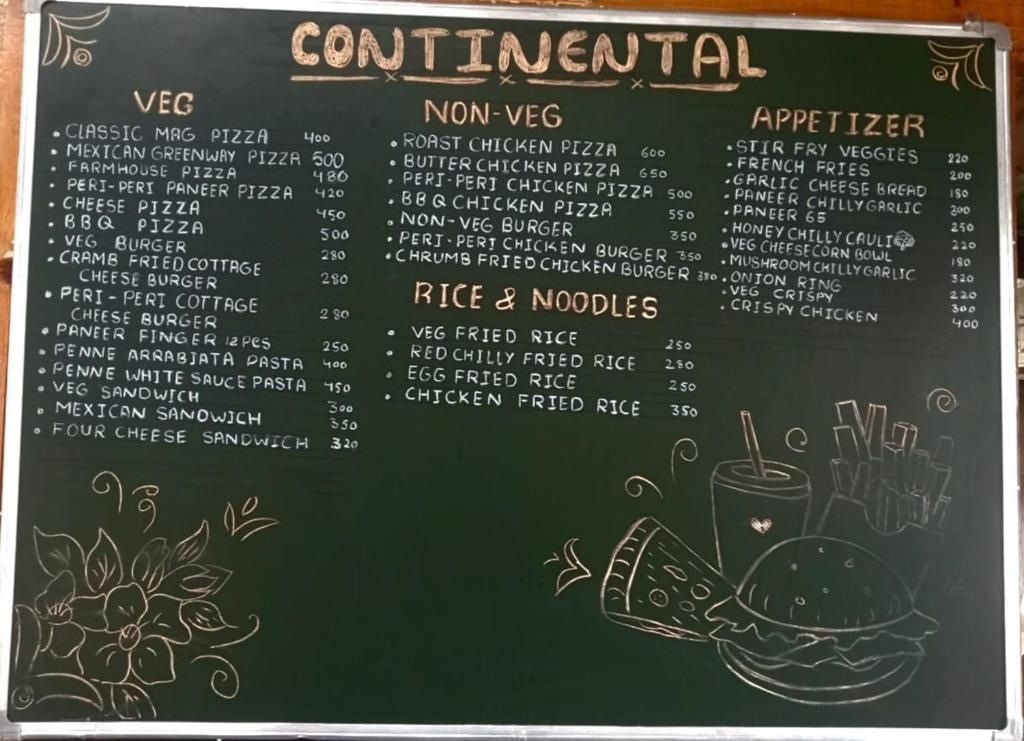 CONTINENTAL
VEG
• CLASSIC MAG PIZZA 400
• MEXICAN GREENWAY PIZZA 500
• FARMHOUSE PIZZA 480
• PERI-PERI PANEER PIZZA 420
• CHEESE PIZZA 450
• BBQ PIZZA 500
• VEG BURGER 280
• CRAMB FRIED COTTAGE
CHEESE BURGER 280
• PERI-PERI COTTAGE
CHEESE BURGER 280
• PANEER FINGER 12 PCS 250
• PENNE ARRABIATA PASTA 400
• PENNE WHITE SAUCE PASTA 450
• VEG SANDWICH 300
• MEXICAN SANDWICH 350
• FOUR CHEESE SANDWICH 320
NON-VEG
• ROAST CHICKEN PIZZA 600
• BUTTER CHICKEN PIZZA 650
• PERI-PERI CHICKEN PIZZA 500
• BBQ CHICKEN PIZZA 550
• NON-VEG BURGER 350
• PERI-PERI CHICKEN BURGER 350
• CHRUMB FRIED CHICKEN BURGER 380
RICE & NOODLES
• VEG FRIED RICE 250
• RED CHILLY FRIED RICE 280
• EGG FRIED RICE 250
• CHICKEN FRIED RICE 350
APPETIZER
• STIR FRY VEGGIES 220
• FRENCH FRIES 200
• GARLIC CHEESE BREAD 180
• PANEER CHILLY GARLIC 300
• PANEER 65 250
• HONEY CHILLY CAULI 220
• VEG CHEESE CORN BOWL 180
• MUSHROOM CHILLY GARLIC 320
• ONION RING 220
• VEG CRISPY 300
• CRISPY CHICKEN 400